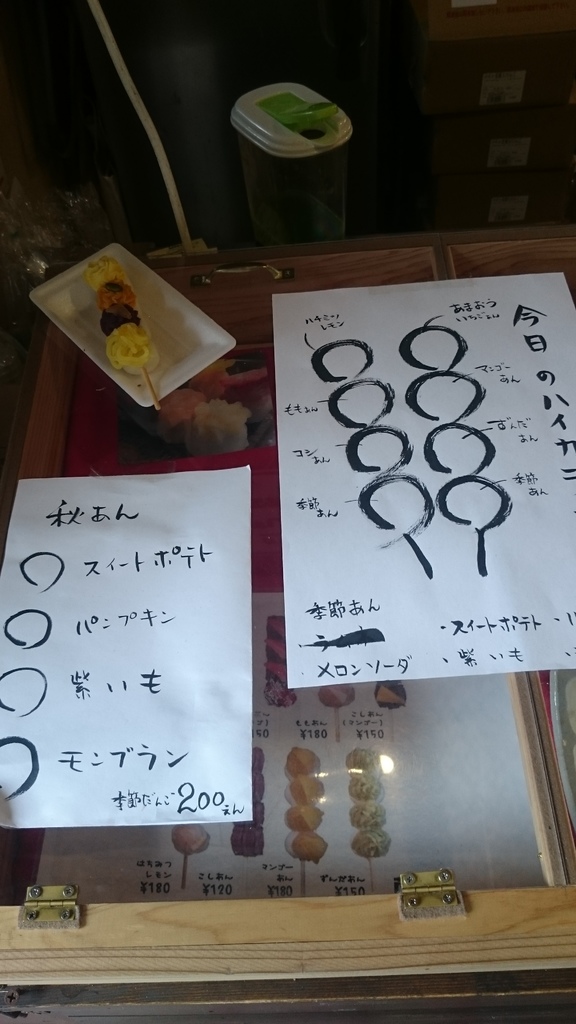 今日のハイカラ
ハチミツ
レモン
あまおう
いちごあん
ももあん
マンゴー
あん
コシ
あん
ずんだ
あん
季節
あん
季節
あん
季節あん
・スイートポテト
メロンソーダ
・紫いも
秋あん
スイートポテト
パンプキン
紫いも
モンブラン
季節だんご200えん
ももあん
¥180
こしあん
(マンゴー)
¥150
はちみつ
レモン
¥180
こしあん
¥120
マンゴー
あん
¥180
ずんだあん
¥150